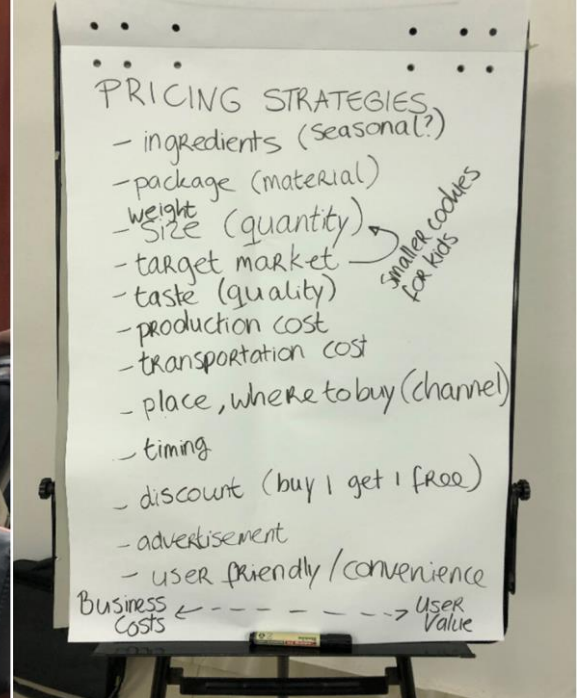 PRICING STRATEGIES
- ingredients (seasonal?)
- package (material)
weight
- size (quantity)
- target market
smaller cookies
for kids
- taste (quality)
- production cost
- transportation cost
- place, where to buy (channel)
- timing
- discount (buy 1 get 1 free)
- advertisement
- user friendly / convenience
Business Costs <- - - - -> User Value